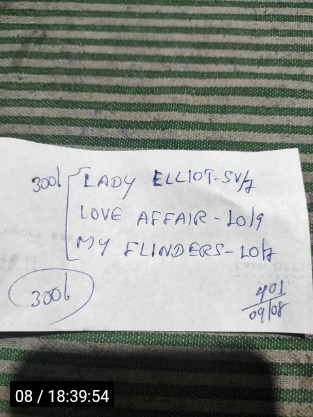 300/- LADY ELLIOT-SV/7
LOVE AFFAIR-10/9
MY FLINDERS-10/7
300/-
401
09/08
08 / 18:39:54